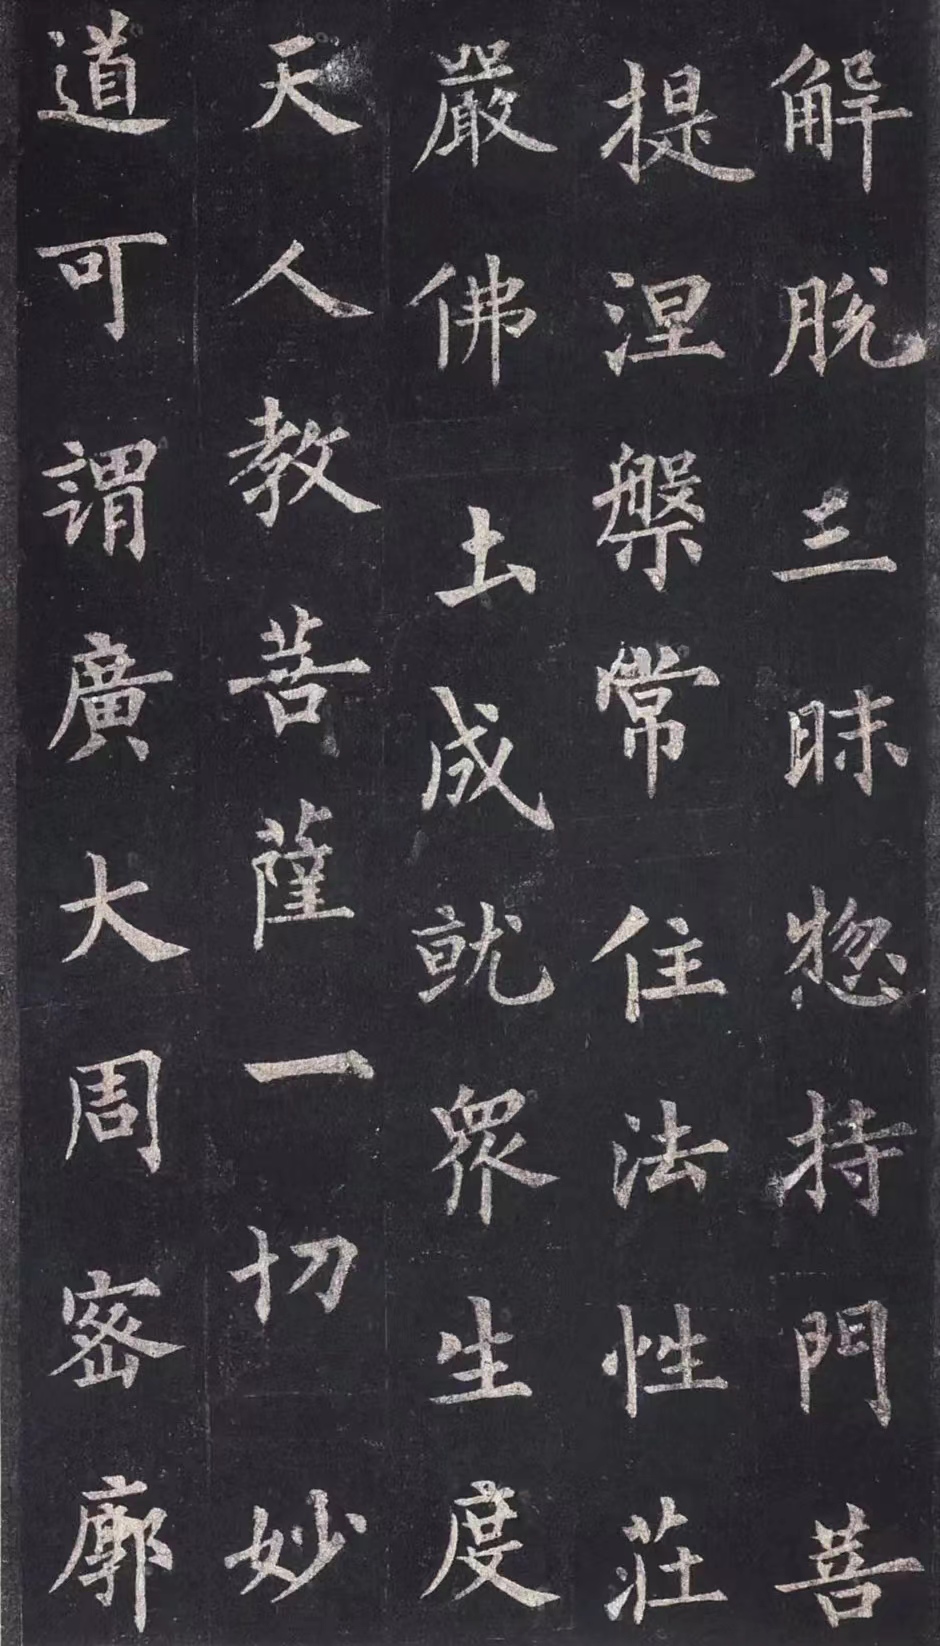 解脫三昧惣持門菩
提涅槃常住法性莊
嚴佛土成就眾生度
天人教菩薩一切妙
道可謂廣大周密廓